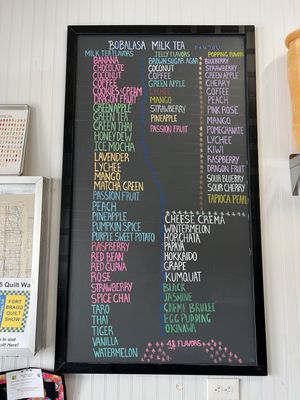 BOBALASA MILK TEA
MILK TEA FLAVORS
BANANA
CHOCOLATE
COCONUT
COFFEE
COOKIES & CREAM
DRAGON FRUIT
GREEN APPLE
GREEN TEA
GREEN THAI
HONEYDEW
ICE MOCHA
LAVENDER
LYCHEE
MANGO
MATCHA GREEN
PASSION FRUIT
PEACH
PINEAPPLE
PUMPKIN SPICE
PURPLE SWEET POTATO
RASPBERRY
RED BEAN
RED GUAVA
ROSE
STRAWBERRY
SPICE CHAI
TARO
THAI
TIGER
VANILLA
WATERMELON
JELLY FLAVORS
BROWN SUGAR AGAR
COCONUT
COFFEE
GREEN APPLE
LYCHEE
MANGO
STRAWBERRY
PINEAPPLE
PASSION FRUIT
CHEESE CREMA
WINTERMELON
HORCHATA
PAPAYA
HOKKAIDO
GRAPE
KUMQUAT
BLACK
JASMINE
CREME BRULEE
EGG PUDDING
OKINAWA
48 FLAVORS
POPPING FLAVORS
BLUEBERRY
STRAWBERRY
GREEN APPLE
CHERRY
COFFEE
PEACH
PINK ROSE
MANGO
POMEGRANATE
LYCHEE
KIWI
RASPBERRY
DRAGON FRUIT
SOUR BLUERRY
SOUR CHERRY
TAPIOCA PEARL
Quilt Wa
FORT
BRAGG
QUILT
SHOW